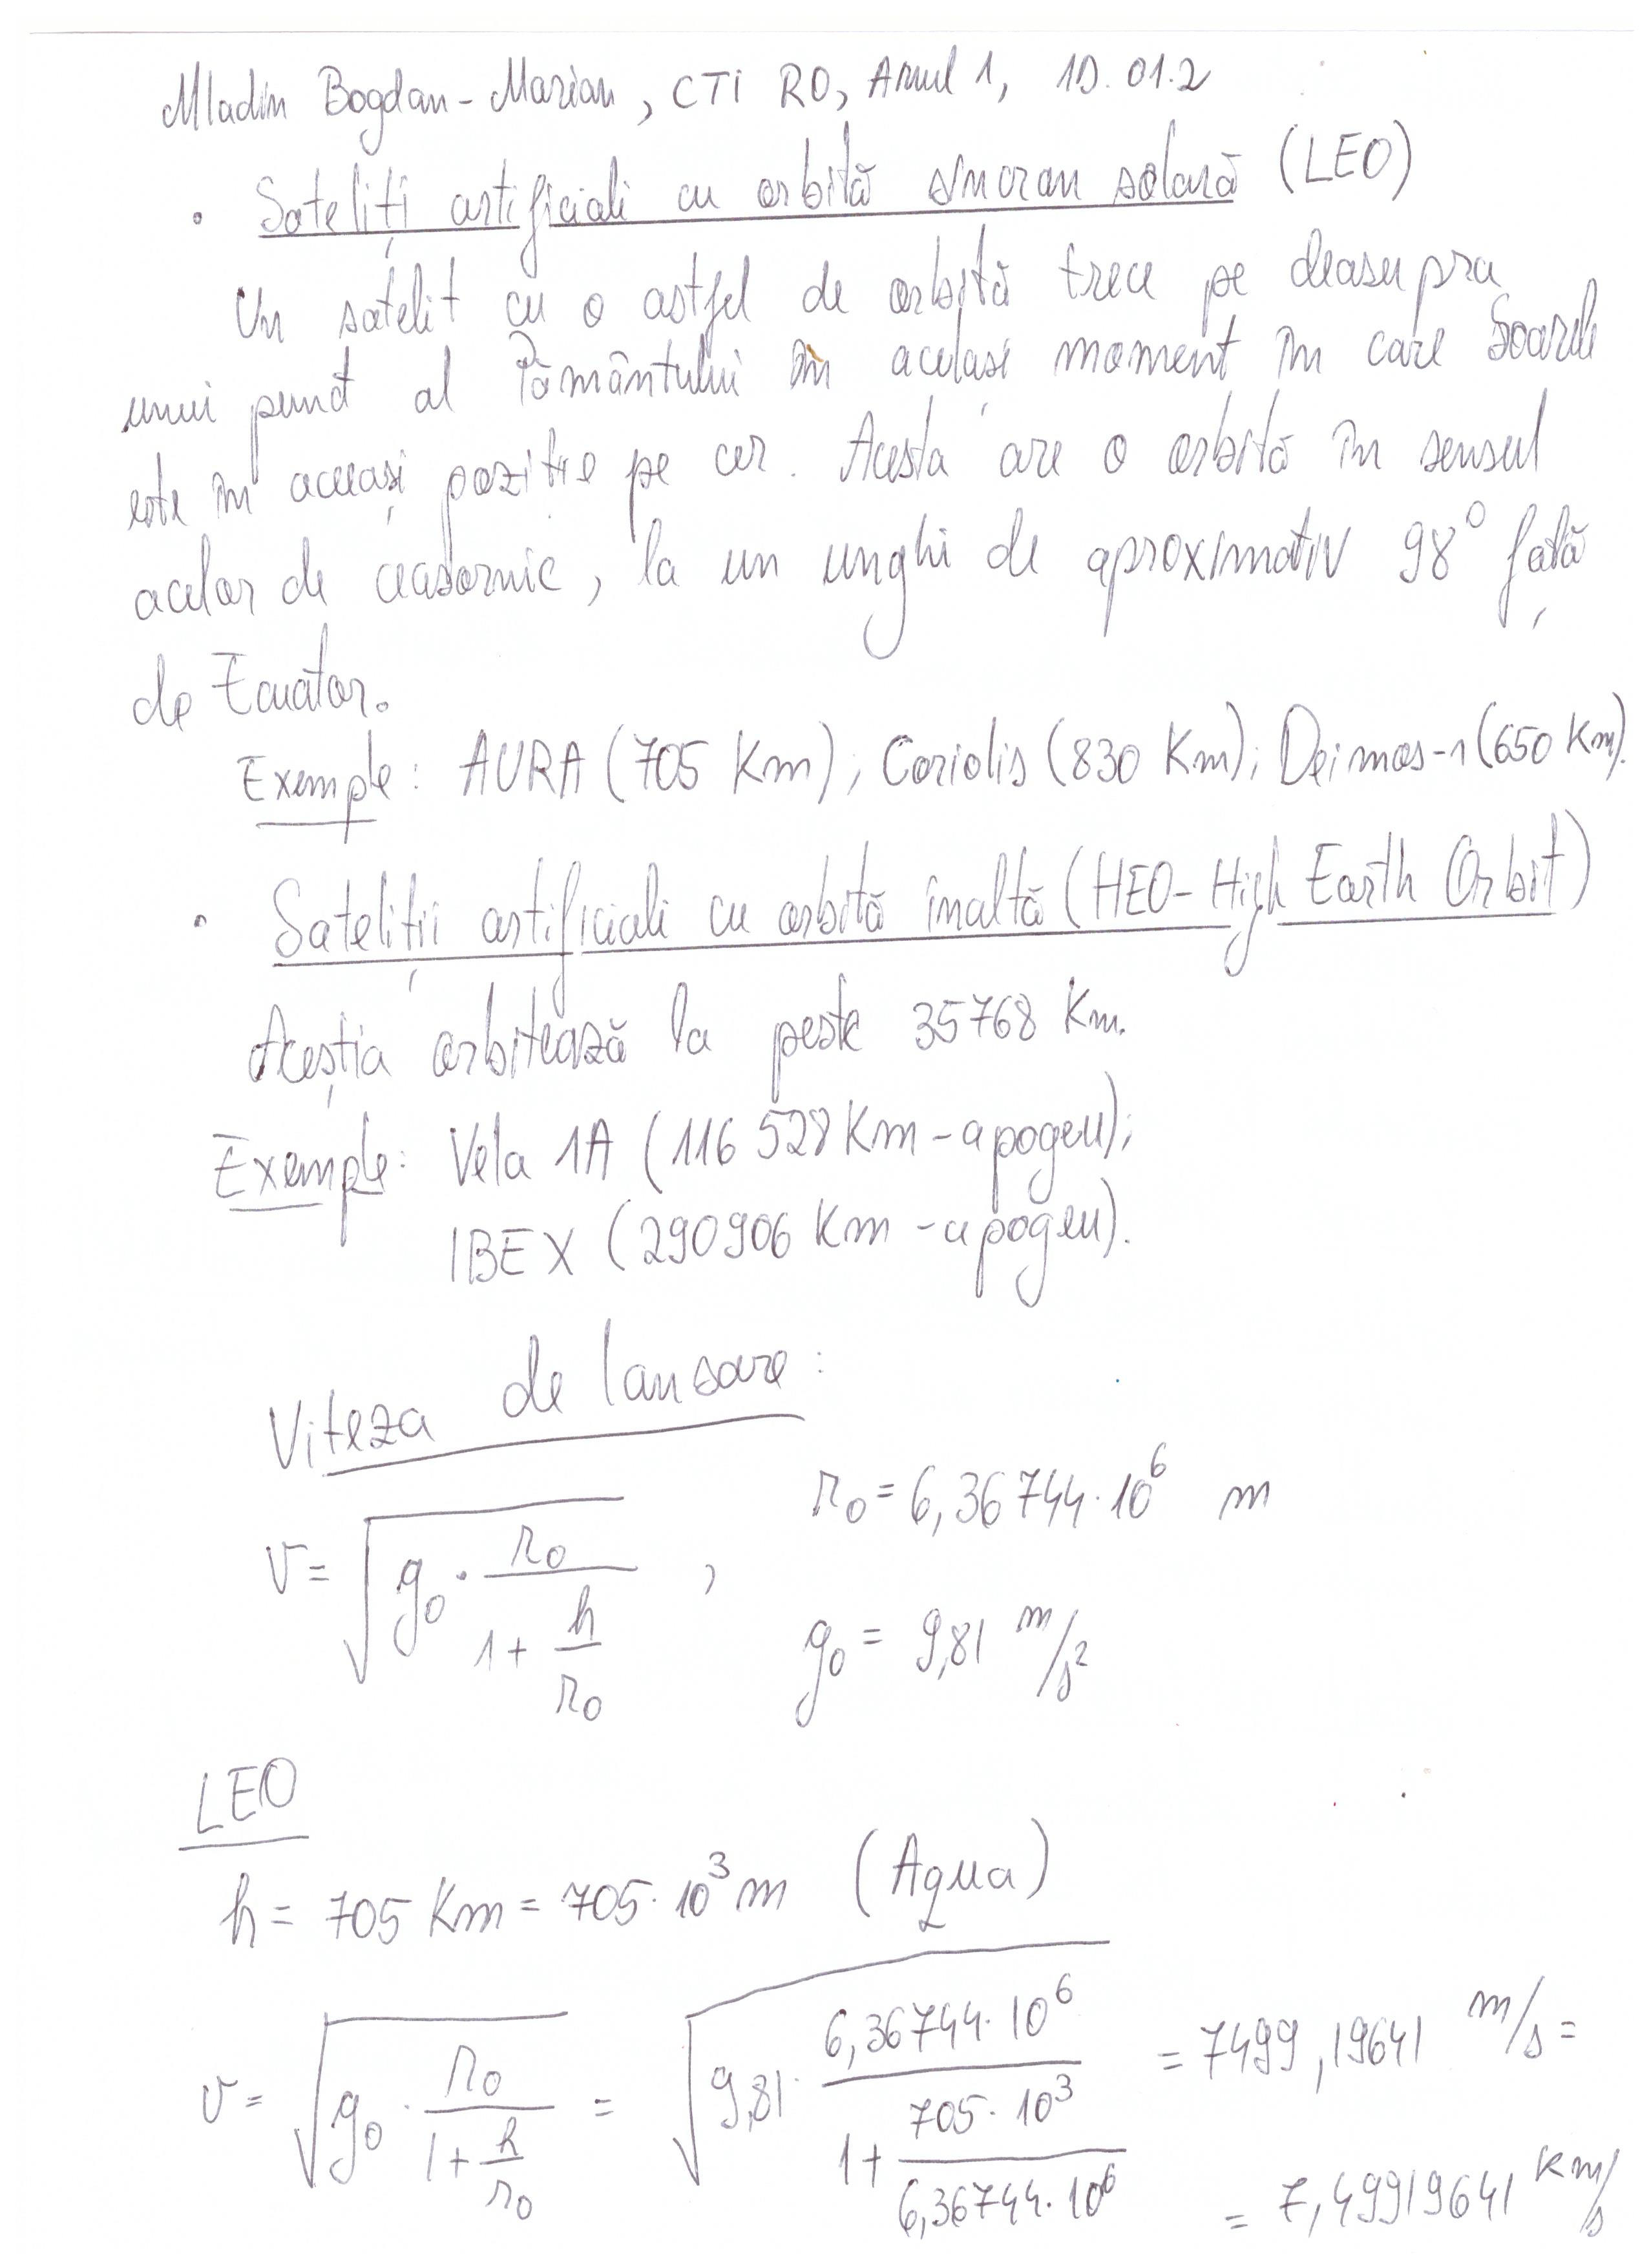 Mladin Bogdan-Marian, CTI RO, Anul 1, 1D.01.2
• Sateliți artificiali cu orbită sincron solară (LEO)
Un satelit cu o astfel de orbită trece pe deasupra
unui punct al Pământului în același moment în care Soarele
este în aceeași poziție pe cer. Acesta are o orbită în sensul
acelor de ceasornic, la un unghi de aproximativ 98° față
de Ecuator.
Exemple: AURA (705 Km); Coriolis (830 Km); Deimos-1 (650 Km).
• Sateliții artificiali cu orbită înaltă (HEO-High Earth Orbit)
Aceștia orbitează la peste 35768 Km.
Exemple: Vela 1A (116 528 Km - apogeu);
IBEX (290906 Km - apogeu).
Viteza de lansare:
v = √(g₀ · r₀/(1 + h/r₀)), r₀ = 6,36744·10⁶ m
g₀ = 9,81 m/s²
LEO
h = 705 Km = 705·10³ m (Aqua)
v = √(g₀ · r₀/(1 + h/r₀)) = √(9,81 · 6,36744·10⁶/(1 + 705·10³/6,36744·10⁶)) = 7499,19641 m/s =
= 7,49919641 Km/s